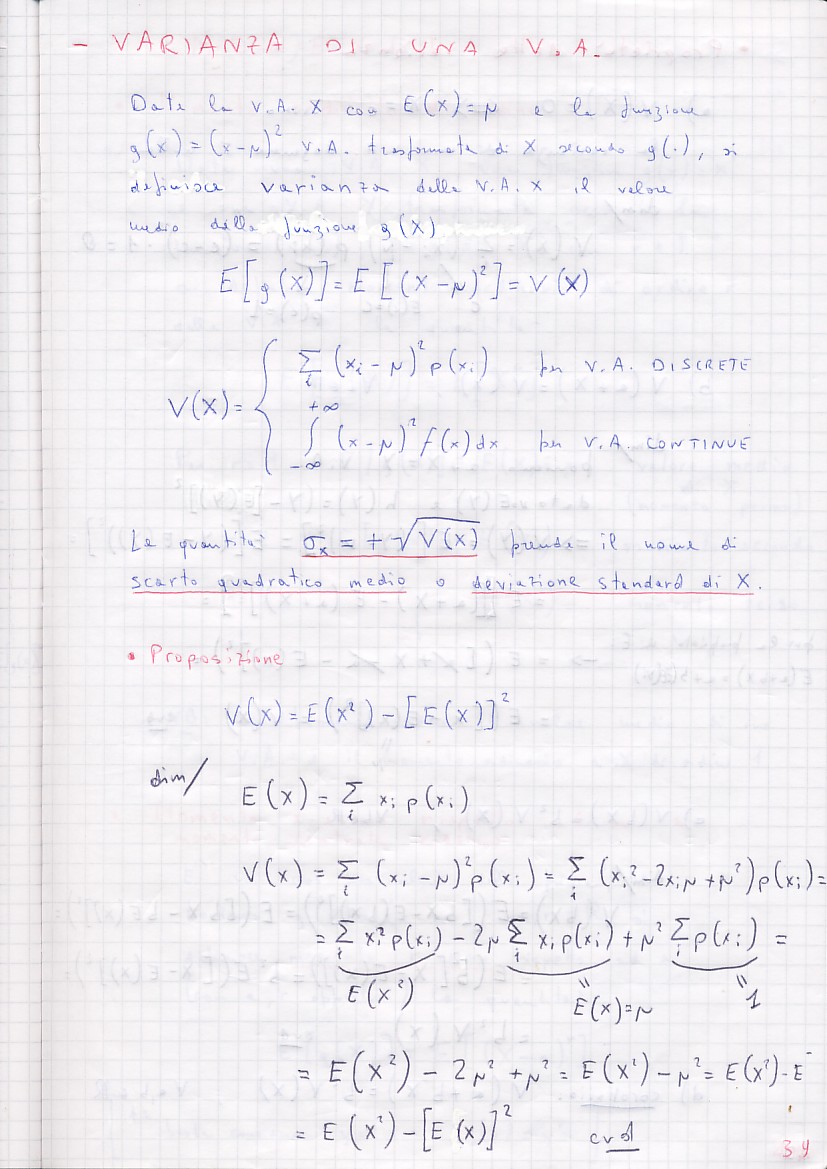 - VARIANZA DI UNA V.A.
Data la V.A. X con E(X)=μ e la funzione
g(x)=(x-μ)² V.A. trasformata di X secondo g(·), si
definisce varianza della V.A. X il valore
medio della funzione g(X)
E[g(X)]=E[(X-μ)²]=V(X)
V(X)= { ∑i (xi-μ)² p(xi) per V.A. DISCRETE
∫-∞+∞ (x-μ)² f(x)dx per V.A. CONTINUE
La quantità σx = +√V(X) prende il nome di
scarto quadratico medio o deviazione standard di X.
• Proposizione
V(X)=E(X²)-[E(X)]²
dim/
E(X)=∑i xi p(xi)
V(X)=∑i (xi-μ)² p(xi)=∑i (xi²-2xiμ+μ²)p(xi)=
=∑i xi² p(xi)-2μ∑i xi p(xi)+μ²∑i p(xi)=
E(X²) " E(X)=μ " 1
=E(X²)-2μ²+μ²=E(X²)-μ²=E(X²)-E
=E(X²)-[E(X)]² cvd
34